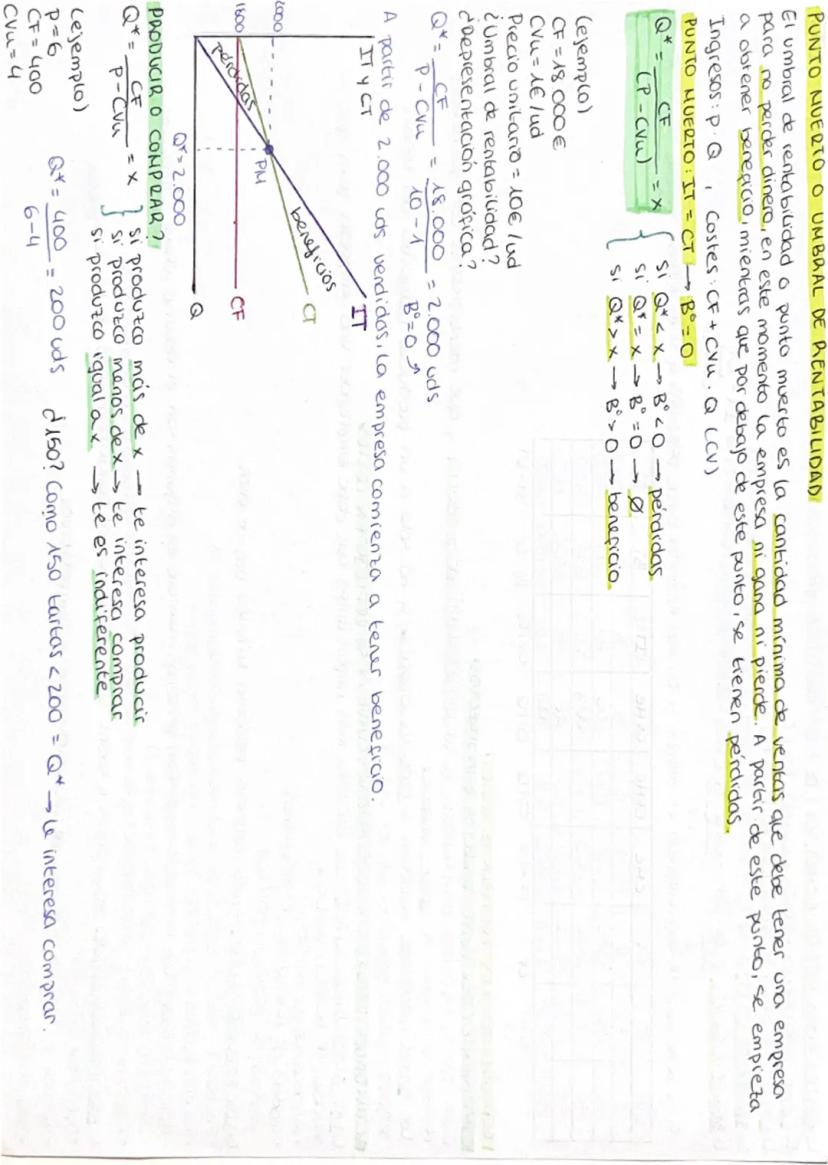 PUNTO MUERTO O UMBRAL DE RENTABILIDAD
El umbral de rentabilidad o punto muerto es la cantidad mínima de ventas que debe tener una empresa
para no perder dinero, en este momento la empresa ni gana ni pierde. A partir de este punto, se empieza
a obtener beneficio, mientras que por debajo de este punto, se tienen pérdidas.
Ingresos: p·Q , Costes: CF + CVu·Q (CV)
PUNTO MUERTO: IT = CT → Bº=0
Q* = CF / (P - CVu) = x
si Q* < x → Bº < 0 → pérdidas
si Q* = x → Bº = 0 → Ø
si Q* > x → Bº > 0 → beneficio
(ejemplo)
CF = 18.000€
CVu = 1€/ud
Precio unitario = 10€/ud
¿Umbral de rentabilidad?
¿Representación gráfica?
Q* = CF / P - CVu = 18.000 / 10 - 1 = 2.000 uds
Bº=0
A partir de 2.000 uds vendidas, la empresa comienza a tener beneficio.
IT y CT
IT
CT
beneficios
PM
CF
pérdidas
Q
Q*=2.000
PRODUCIR O COMPRAR?
Q* = CF / P - CVu = x
si produzco más de x → te interesa producir
si produzco menos de x → te interesa comprar
si produzco igual a x → te es indiferente
(ejemplo)
p=6
CF=400
CVu=4
Q* = 400 / 6-4 = 200 uds
¿150? Como 150 tartas < 200 = Q* → le interesa comprar.